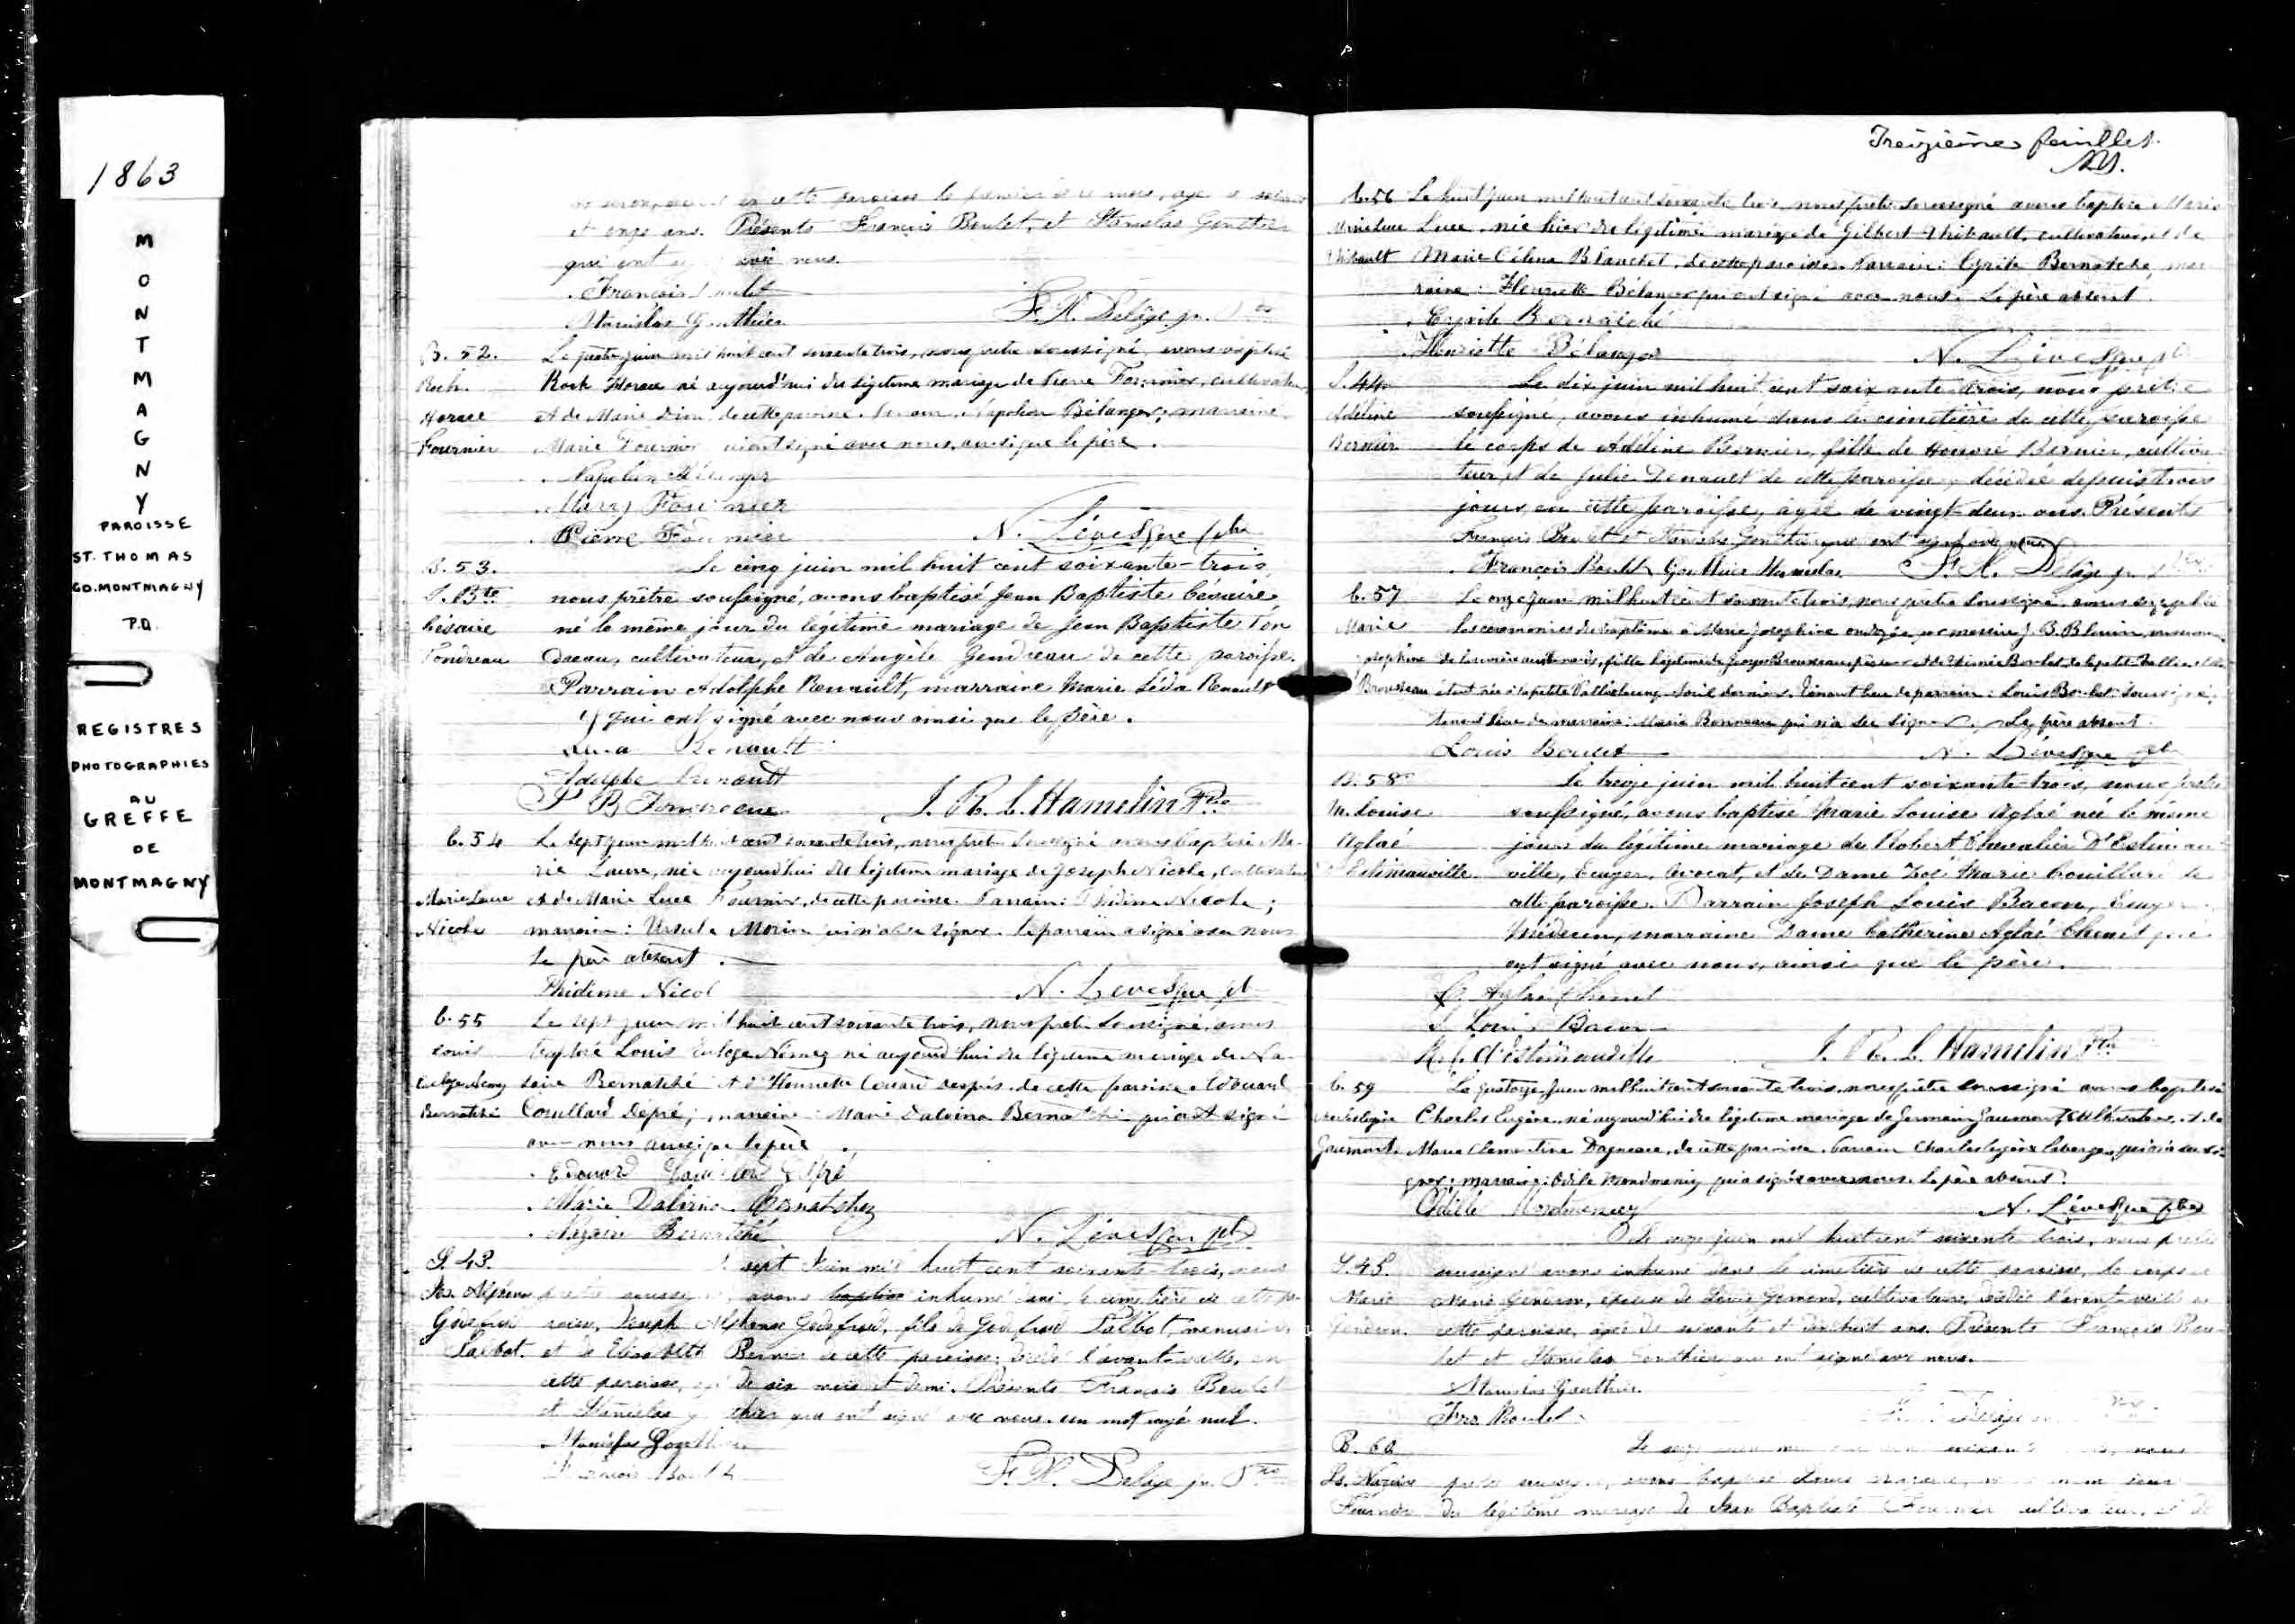 1863
M
O
N
T
M
A
G
N
Y
PAROISSE
ST. THOMAS
CO. MONTMAGNY
P.Q.
REGISTRES
PHOTOGRAPHIES
AU
GREFFE
DE
MONTMAGNY
en cette paroisse le premier de ce mois, agé de
et onze ans. Présents François Boulet, et Stanislas Gonthier
qui ont avec nous.
François
Stanislas Gonthier F. H. Delâge jn. Ptre
B. 52. Le juin mil huit cent soixante trois, nous prêtre soussigné, avons baptisé
Roch Roch Horace né aujourd'hui du légitime mariage de Pierre Fournier, cultivateur
Horace et de Marie Dion de cette paroisse. Parrain, Napoléon Bélanger; marraine
Fournier Marie Fournier qui ont signé avec nous, ainsi que le père.
Napoléon Bélanger
Mary Fournier
Pierre Fournier N. Lévesque ptre
B. 53. Le cinq juin mil huit cent soixante-trois,
J. Bte nous prêtre soussigné, avons baptisé Jean Baptiste Césaire
Césaire né le même jour du légitime mariage de Jean Baptiste Ton
Tondreau dreau, cultivateur, et de Angèle Gendreau de cette paroisse.
Parrain Adolphe Renault, marraine Marie Léda Renault
qui ont signé avec nous ainsi que le père.
Renault
Adolphe Renault
J. B. Tondreau J. R. L. Hamelin Ptre
B. 54 Le sept juin mil huit cent soixante trois, nous prêtre soussigné avons baptisé Ma-
rie Laure, née aujourd'hui du légitime mariage de Joseph Nicole, cultivateur
Marie Laure et de Marie Luce Fournier, de cette paroisse. Parrain: Phidime Nicole;
Nicole marraine: Ursule Morin qui n'a su signer. le parrain a signé avec nous
Le père absent.
Phidime Nicol N. Lévesque pt
B. 55 Le sept juin mil huit cent soixante trois, nous prêtre soussigné, avons
Louis baptisé Louis Euloge Némez né aujourd'hui du légitime mariage de Na-
Euloge Némez zaire Bernatché et d'Henriette Couard Després de cette paroisse. Edouard
Bernatché Couillard Depré; marraine: Marie Dalvina Bernatché qui ont signé
avec nous ainsi que le père.
Edouard Couillard Dépré
Marie Dalvina Bernatchez
Nazaire Bernatché N. Lévesque pt
S. 43. sept Juin mil huit cent soixante-trois, nous
Jos. Alphonse prêtre soussigné, avons baptisé inhumé dans le cimetière de cette pa-
Godefroid roisse, Joseph Alphonse Godefroid, fils de Godefroid Talbot, menuisier
Talbot. et de Elisabeth Bernier de cette paroisse, décédé l'avant-veille, en
cette paroisse, agé de six mois et demi. Présents François Boulet
et Stanislas Gonthier qui ont signé avec nous. un mot rayé nul.
Stanislas Gonthier
François Boulet F. H. Delâge jn. Ptre
Treizième feuillet.
B. 56 Le huit juin mil huit cent soixante trois, nous prêtre soussigné avons baptisé Marie
Marie Luce Luce, née hier du légitime mariage de Gilbert Thibault, cultivateur, et de
Thibault Marie Célina Blanchet, de cette paroisse. Parrain: Cyrile Bernatché, mar
raine: Henriette Bélanger qui ont signé avec nous. Le père absent.
Cyrile Bernatché
Henriette Bélanger N. Lévesque pt
S. 44 Le dix juin mil huit cent soixante trois, nous prêtre
Adeline soussigné, avons inhumé dans le cimetière de cette paroisse
Bernier le corps de Adéline Bernier, fille de Honoré Bernier, cultiva-
teur, et de Julie Denault de cette paroisse, décédée depuis trois
jours en cette paroisse, agée de vingt deux ans. Présents
François Boulet et Stanislas Gonthier qui ont signé avec nous.
François Boulet Gonthier Stanislas F. H. Delâge jn. Ptre
B. 57 Le onze juin mil huit cent soixante trois, nous prêtre soussigné, avons suppléé
Marie les cérémonies du baptême à Marie Josephine ondoyée par messire J. B. Blouin,
Josephine fille légitime de George Brousseau et de Boulet, de la petite
Brousseau étant née dernier. Tenant lieu de parrain: Louis Boulet soussigné;
tenant lieu de marraine: Marie Bonneau qui n'a su signer. Le père absent.
Louis Boulet N. Lévesque pt
B. 58 Le treize juin mil huit cent soixante-trois, nous prêtre
M. Louise soussigné, avons baptisé Marie Louise Aglaé née le même
Aglaé jour du légitime mariage de Robert Chevalier D'Estimau
D'Estimauville ville, Ecuyer, Avocat, et de Dame Zoé Marie Couillard de
cette paroisse. Parrain Joseph Louis Bacon, Ecuyer
Médecin, marraine Dame Catherine Aglaé Chenet qui
ont signé avec nous, ainsi que le père.
C. Aglaé Chenet
J. Louis Bacon
R. C. d'Estimauville J. R. L. Hamelin Ptre
B. 59 Le quatorze Juin mil huit cent soixante trois, nous prêtre soussigné avons baptisé
Charles Eugène Charles Eugène, né aujourd'hui du légitime mariage de Germain Gaumont, cultivateur, et de
Gaumont Marie Clementine Dagneau, de cette paroisse. Parrain Charles Eugène Laberge, qui n'a su si-
gner; marraine: Odile Montmeny qui a signé avec nous. Le père absent.
Odile Montmeny N. Lévesque ptre
Le seize juin mil huit cent soixante trois, nous prêtre
S. 45. soussigné avons inhumé dans le cimetière de cette paroisse, le corps de
Marie Marie Gendron, épouse de Louis Gemond, cultivateur, décédée l'avant-veille en
Gendron. cette paroisse, agée de soixante et dix huit ans. Présents François Bou-
let et Stanislas Gonthier qui ont signé avec nous.
Stanislas Gonthier
Frs Boulet Delâge
B. 60 Le nous
Ls. Nazaire prêtre soussigné, avons baptisé Louis Nazaire,
Fournier du légitime mariage de Jean Baptiste Fournier cultivateur, et de